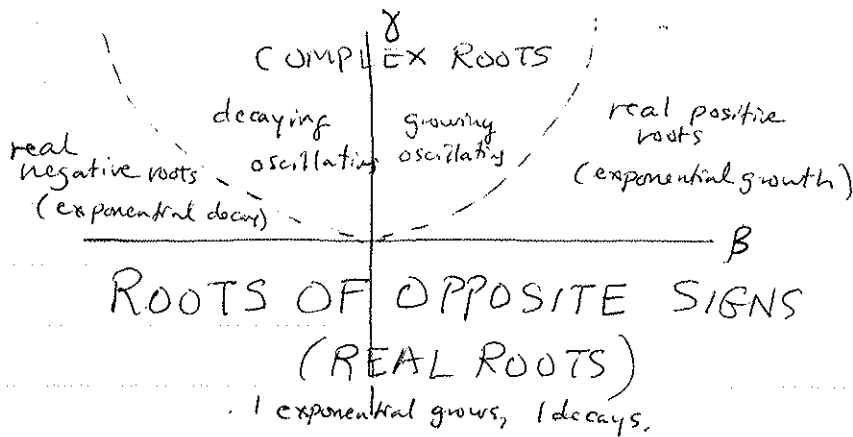 γ
COMPLEX ROOTS
decaying
oscillating
growing
oscillating
real positive
roots
(exponential growth)
real
negative roots
(exponential decay)
β
ROOTS OF OPPOSITE SIGNS
(REAL ROOTS)
1 exponential grows, 1 decays.